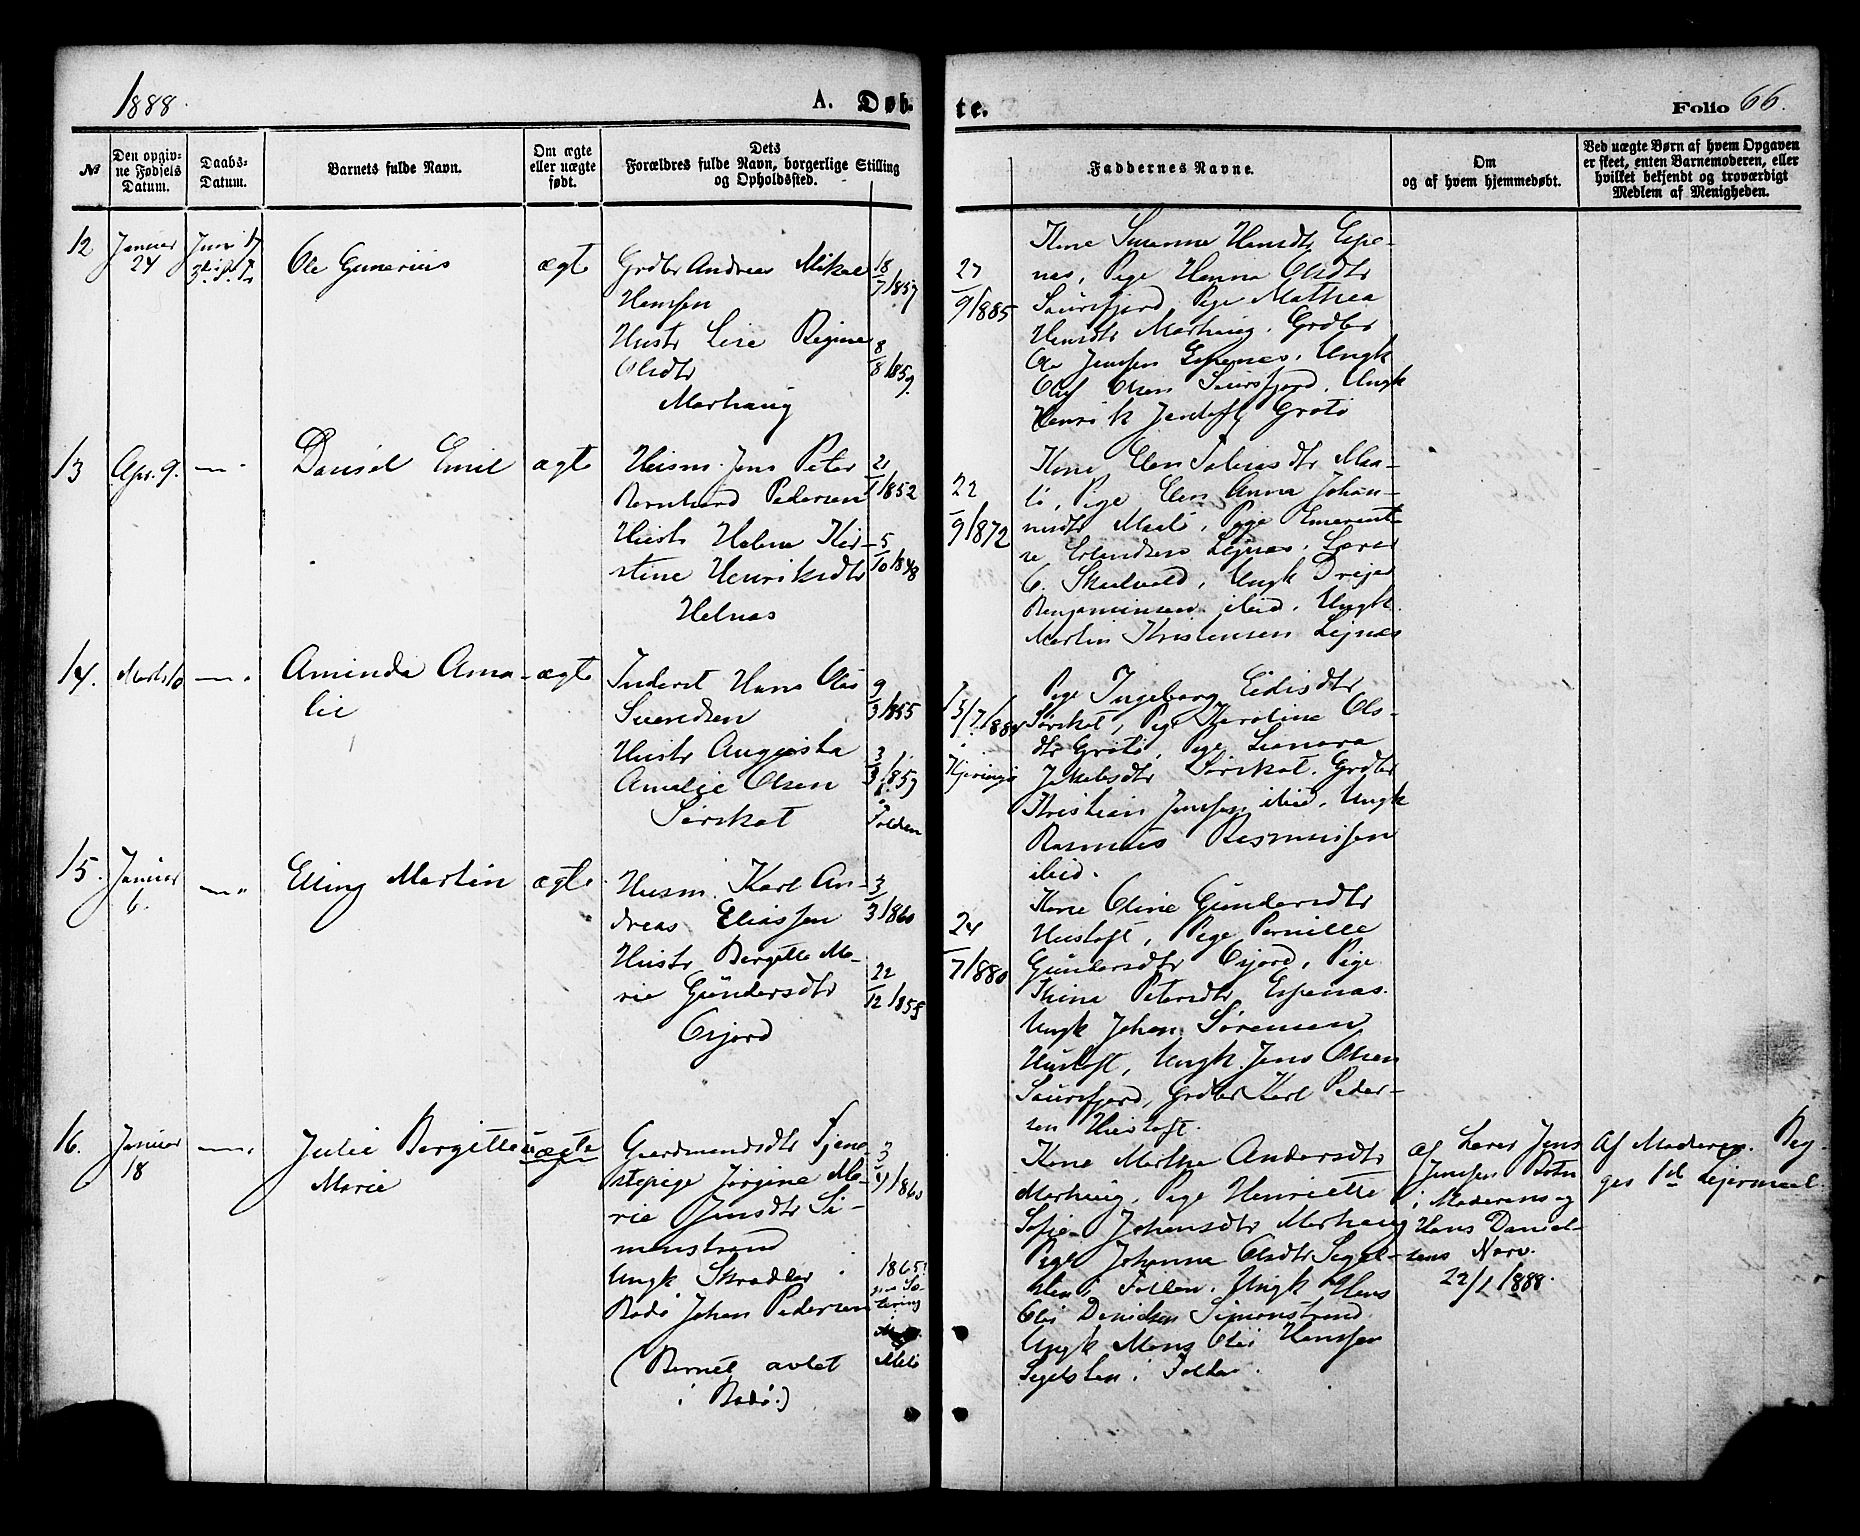 1888.
A. Døb-
te.
Folio 66.
№
Den opgiv-
ne Fødsels
Datum.
Daabs-
Datum.
Barnets fulde Navn.
Om ægte
eller uægte
født.
Dets
Forældres fulde Navn, borgerlige Stilling
og Opholdssted.
Faddernes Navne.
Om
og af hvem hjemmedøbt.
Ved uægte Børn af hvem Opgaven
er skeet, enten Barnemoderen, eller
hvilket bekjendt og troværdigt
Medlem af Menigheden.
12
Januar
24
Juni 17
Ole Gunerius
ægte
Grdbr Andreas Mikal
Hanssen
Hustr Lise Regine
Olsdtr
Marhaug
18
7/1857
8
8/1859.
27
9/1885
Kone Susanna Hansdtr Espe-
næs, Pige Hanna Olsdtr
Saursfjord Pige Mathea
Hansdtr Marhaug. Grdbr
Ole Jenssen Espenæs. Ungk
Oluf Olsen Saursfjord. Ungk
Henrik Jentoft Grøtø
13
Apr. 9.
— "
Daniel Emil
ægte
Huusm. Jens Peter
Bernhard Pedersen
Hustr Helene Kir-
stine Henriksdtr
Helnæs
21
1/1852
5
10/1848
22
9/1872
Kone Elen Tobiasdtr Maa-
lø, Pige Elen Anna Johan-
nesdtr Maalø, Pige Emerent-
se Erlendsen Leinæs. Lærer
O. Skadvold, Ungk Drejer
Benjaminsen ibid. Ungk.
Martin Kristensen Leinæs
14.
Marts 10
— "
Aminda Ama-
lie
ægte
Inderst Hans Olai
Svendsen
Hustr Augusta
Amalie Olsen
Sørskot
9
3/1855
3
3/1859
Folden
13/7/1884
Kjeringø
Pige Ingeborg Eidisdtr
Sørskot, Pige Karoline Ols-
dtr Grøtø, Pige Leonora
Jakobsdtr Sørskot. Grdbr
Kristian Jenssen ibid. Ungk
Rasmus Rasmussen
ibid.
15.
Januar
6.
— "
Elling Martin
ægte
Husm. Karl An-
dreas Eliassen
Hustr Bergitte Ma-
rie Gundersdtr
Osjord
3
3/1860
22
12/1858
24
7/1880
Kone Oline Gundersdtr
Hustoft, Pige Pernille
Gundersdtr Osjord, Pige
Trine Petersdtr Espenæs.
Ungk Johan Sørensen
Hustoft, Ungk. Jens Olsen
Saursfjord, Grdbr Karl Peder-
sen Hustoft.
16.
Januar
18
— "
Julie Bergitte
Marie
uægte
Gaardmandsdtr Tjene-
stepige Jørgine Ma-
rie Jensdtr Si-
monstrand
Ungk Skrædder
Bodø Johan Pedersen
(Barnet avlet
i Bodø.)
3
9/1860
1865?
Kone Marthe Andersdtr
Marhaug, Pige Henriette
Sofie Johansdtr Marhaug
Pige Johanna Olsdtr Segel-
sten i Folden. Ungk Hans
Olai Danielsen Simonstrand
Ungk Mons Olai Hanssen
Segelsten i Folden.
af Lærer Jens
Jenssen Botn
i Moderens og
Hans Daniel-
sens Nærv.
22/1 1888.
Af Moderen. Beg-
ges 1ste Leiermaal.